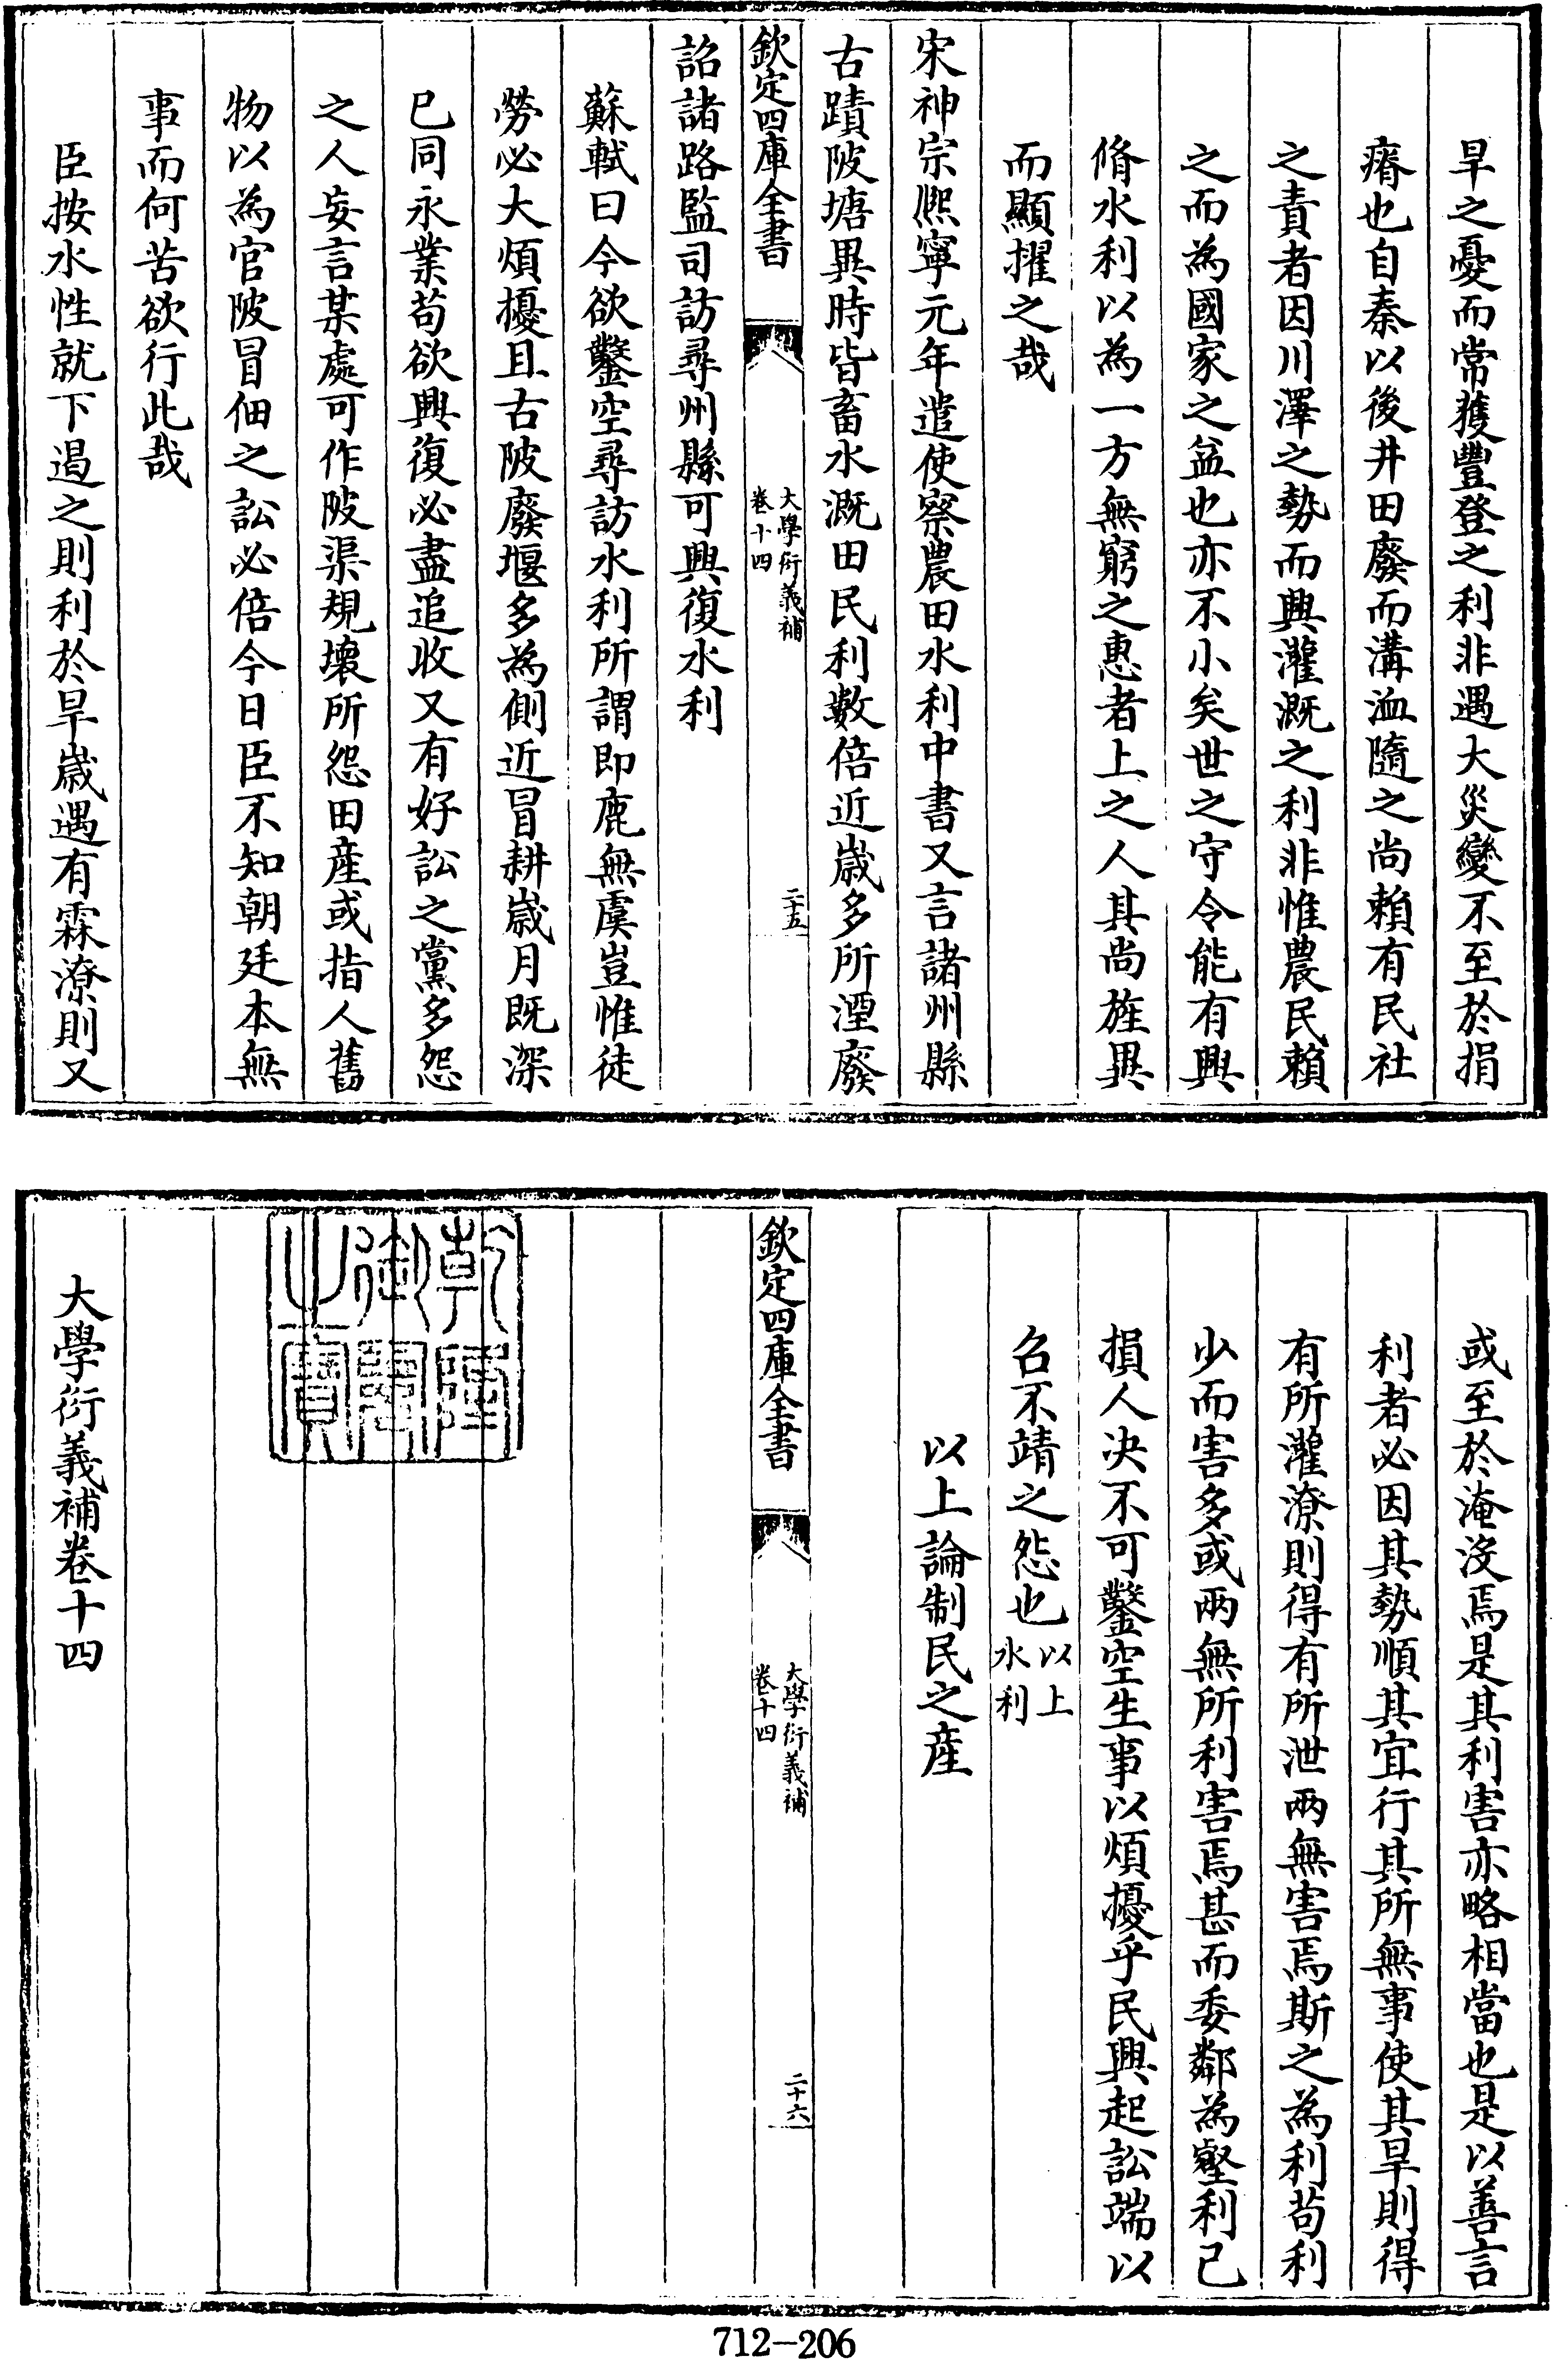 旱之憂而常獲豐登之利非遇大災變不至於捐
瘠也自秦以後井田廢而溝洫隨之尚賴有民社
之責者因川澤之勢而興灌溉之利非惟農民賴
之而為國家之益也亦不小矣世之守令能有興
脩水利以為一方無窮之惠者上之人其尚旌異
而顯擢之哉
宋神宗熈寧元年遣使察農田水利中書又言諸州縣
古蹟陂塘異時皆畜水溉田民利數倍近嵗多所湮廢
欽定四庫全書
大學衍義補
卷十四
二十五
詔諸路監司訪尋州縣可興復水利
蘇軾曰今欲鑿空尋訪水利所謂即鹿無虞豈惟徒
勞必大煩擾且古陂廢堰多為側近冒耕嵗月既深
已同永業苟欲興復必盡追收又有好訟之黨多怨
之人妄言某處可作陂渠規壞所怨田産或指人舊
物以為官陂冒佃之訟必倍今日臣不知朝廷本無
事而何苦欲行此哉
臣按水性就下遏之則利於旱嵗遇有霖潦則又
或至於淹没焉是其利害亦略相當也是以善言
利者必因其勢順其宜行其所無事使其旱則得
有所灌潦則得有所泄兩無害焉斯之為利茍利
少而害多或兩無所利害焉甚而委鄰為壑利己
損人决不可鑿空生事以煩擾乎民興起訟端以
召不靖之怨也
以上
水利
以上論制民之産
欽定四庫全書
大學衍義補
卷十四
二十六
乾隆
御覽
之寶
大學衍義補卷十四
712-206